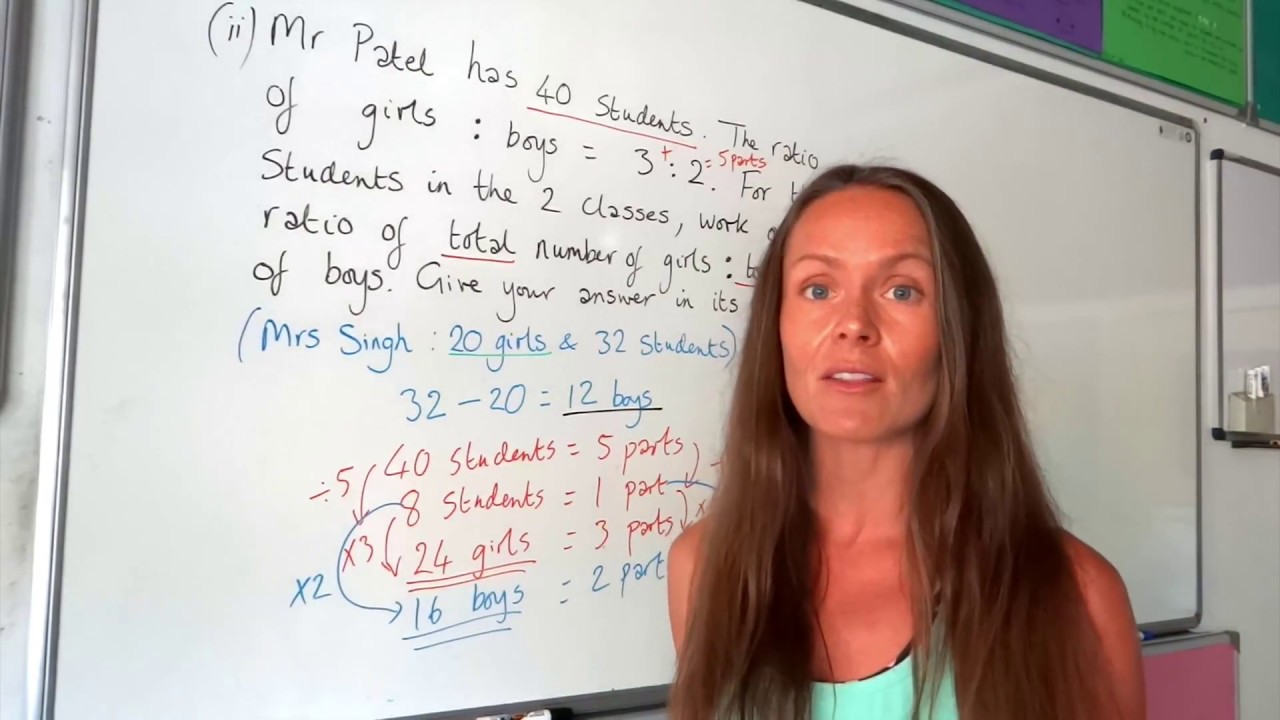 (ii) Mr Patel has 40 Students. The ratio
of girls : boys = 3 + : 2 = 5 parts. For
Students in the 2 classes, work
ratio of total number of girls :
of boys. Give your answer in its
(Mrs Singh : 20 girls & 32 Students)
32 - 20 = 12 boys
÷5 40 Students = 5 parts
8 Students = 1 part
x3 24 girls = 3 parts
x2 16 boys = 2 part